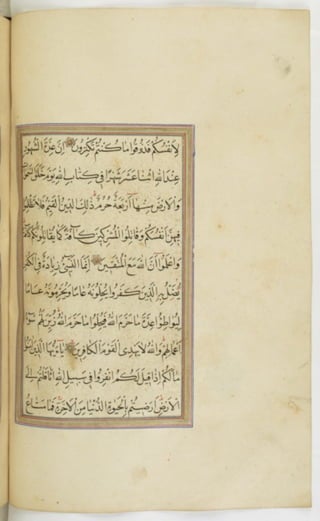 لِأَنْفُسِكُمْ فَذُوقُوا مَا كُنْتُمْ تَكْنِزُونَ إِنَّ عِدَّةَ الشُّهُورِ
عِنْدَ اللَّهِ اثْنَا عَشَرَ شَهْرًا فِي كِتَابِ اللَّهِ يَوْمَ خَلَقَ السَّمٰوَاتِ
وَالْأَرْضَ مِنْهَا أَرْبَعَةٌ حُرُمٌ ذٰلِكَ الدِّينُ الْقَيِّمُ فَلَا تَظْلِمُوا
فِيهِنَّ أَنْفُسَكُمْ وَقَاتِلُوا الْمُشْرِكِينَ كَافَّةً كَمَا يُقَاتِلُونَكُمْ كَافَّةً
وَاعْلَمُوا أَنَّ اللَّهَ مَعَ الْمُتَّقِينَ إِنَّمَا النَّسِيءُ زِيَادَةٌ فِي الْكُفْرِ
يُضَلُّ بِهِ الَّذِينَ كَفَرُوا يُحِلُّونَهُ عَامًا وَيُحَرِّمُونَهُ عَامًا
لِيُوَاطِئُوا عِدَّةَ مَا حَرَّمَ اللَّهُ فَيُحِلُّوا مَا حَرَّمَ اللَّهُ زُيِّنَ لَهُمْ سُوءُ
أَعْمَالِهِمْ وَاللَّهُ لَا يَهْدِي الْقَوْمَ الْكَافِرِينَ يَا أَيُّهَا الَّذِينَ آمَنُوا
مَا لَكُمْ إِذَا قِيلَ لَكُمُ انْفِرُوا فِي سَبِيلِ اللَّهِ اثَّاقَلْتُمْ إِلَى
الْأَرْضِ أَرَضِيتُمْ بِالْحَيٰوةِ الدُّنْيَا مِنَ الْآخِرَةِ فَمَا مَتَاعُ